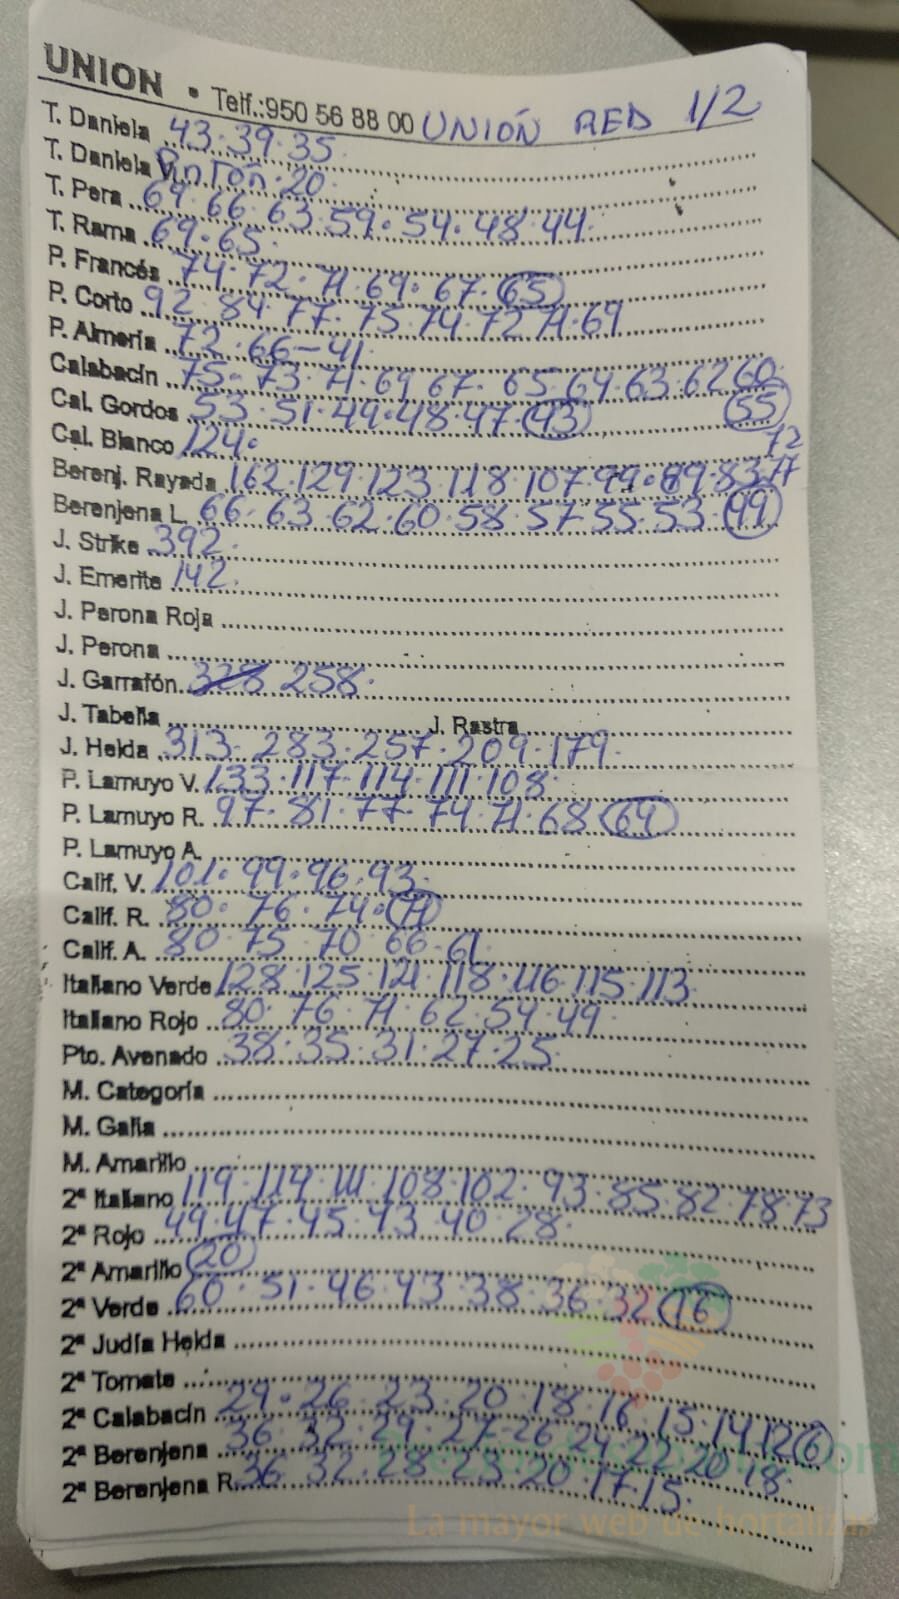 UNION • Telf.:950 56 88 00 UNIÓN RED 1/2
T. Daniela 43·39·35
T. Daniela V. Pintón·20·
T. Pera 69·66·63·59·54·48·44·
T. Rama 69·65·
P. Francés 74·72·71·69·67·65
P. Corto 92·84·77·75·74·72·71·69
P. Almería 72·66-41·
Calabacín 75·73·71·69·67·65·64·63·62·60·55
Cal. Gordos 53·51·49·48·47·43
Cal. Blanco 124·
Berenj. Rayada 162·129·123·118·107·99·89·83·77·72
Berenjena L. 66·63·62·60·58·57·55·53·49
J. Strike 392·
J. Emerite 142·
J. Perona Roja
J. Perona
J. Garrafón 328 258·
J. Tabella J. Rastra
J. Helda 313·283·257·209·179·
P. Lamuyo V. 133·117·114·111·108·
P. Lamuyo R. 97·81·77·74·71·68·64
P. Lamuyo A.
Calif. V. 101·99·96·93·
Calif. R. 80·76·74·71
Calif. A. 80·75·70·66·61
Italiano Verde 128·125·121·118·116·115·113
Italiano Rojo 80·76·71·62·54·49·
Pto. Avenado 38·35·31·27·25·
M. Categoría
M. Galia
M. Amarillo
2ª Italiano 119·114·111·108·102·93·85·82·78·73
2ª Rojo 49·47·45·43·40·28·
2ª Amarillo 20
2ª Verde 60·51·46·43·38·36·32·16
2ª Judía Helda
2ª Tomate
2ª Calabacín 29·26·23·20·18·16·15·14·12·6
2ª Berenjena 36·32·29·27·26·24·22·20·18·
2ª Berenjena R. 36·32·28·23·20·17·15·
La mayor web de hortalizas